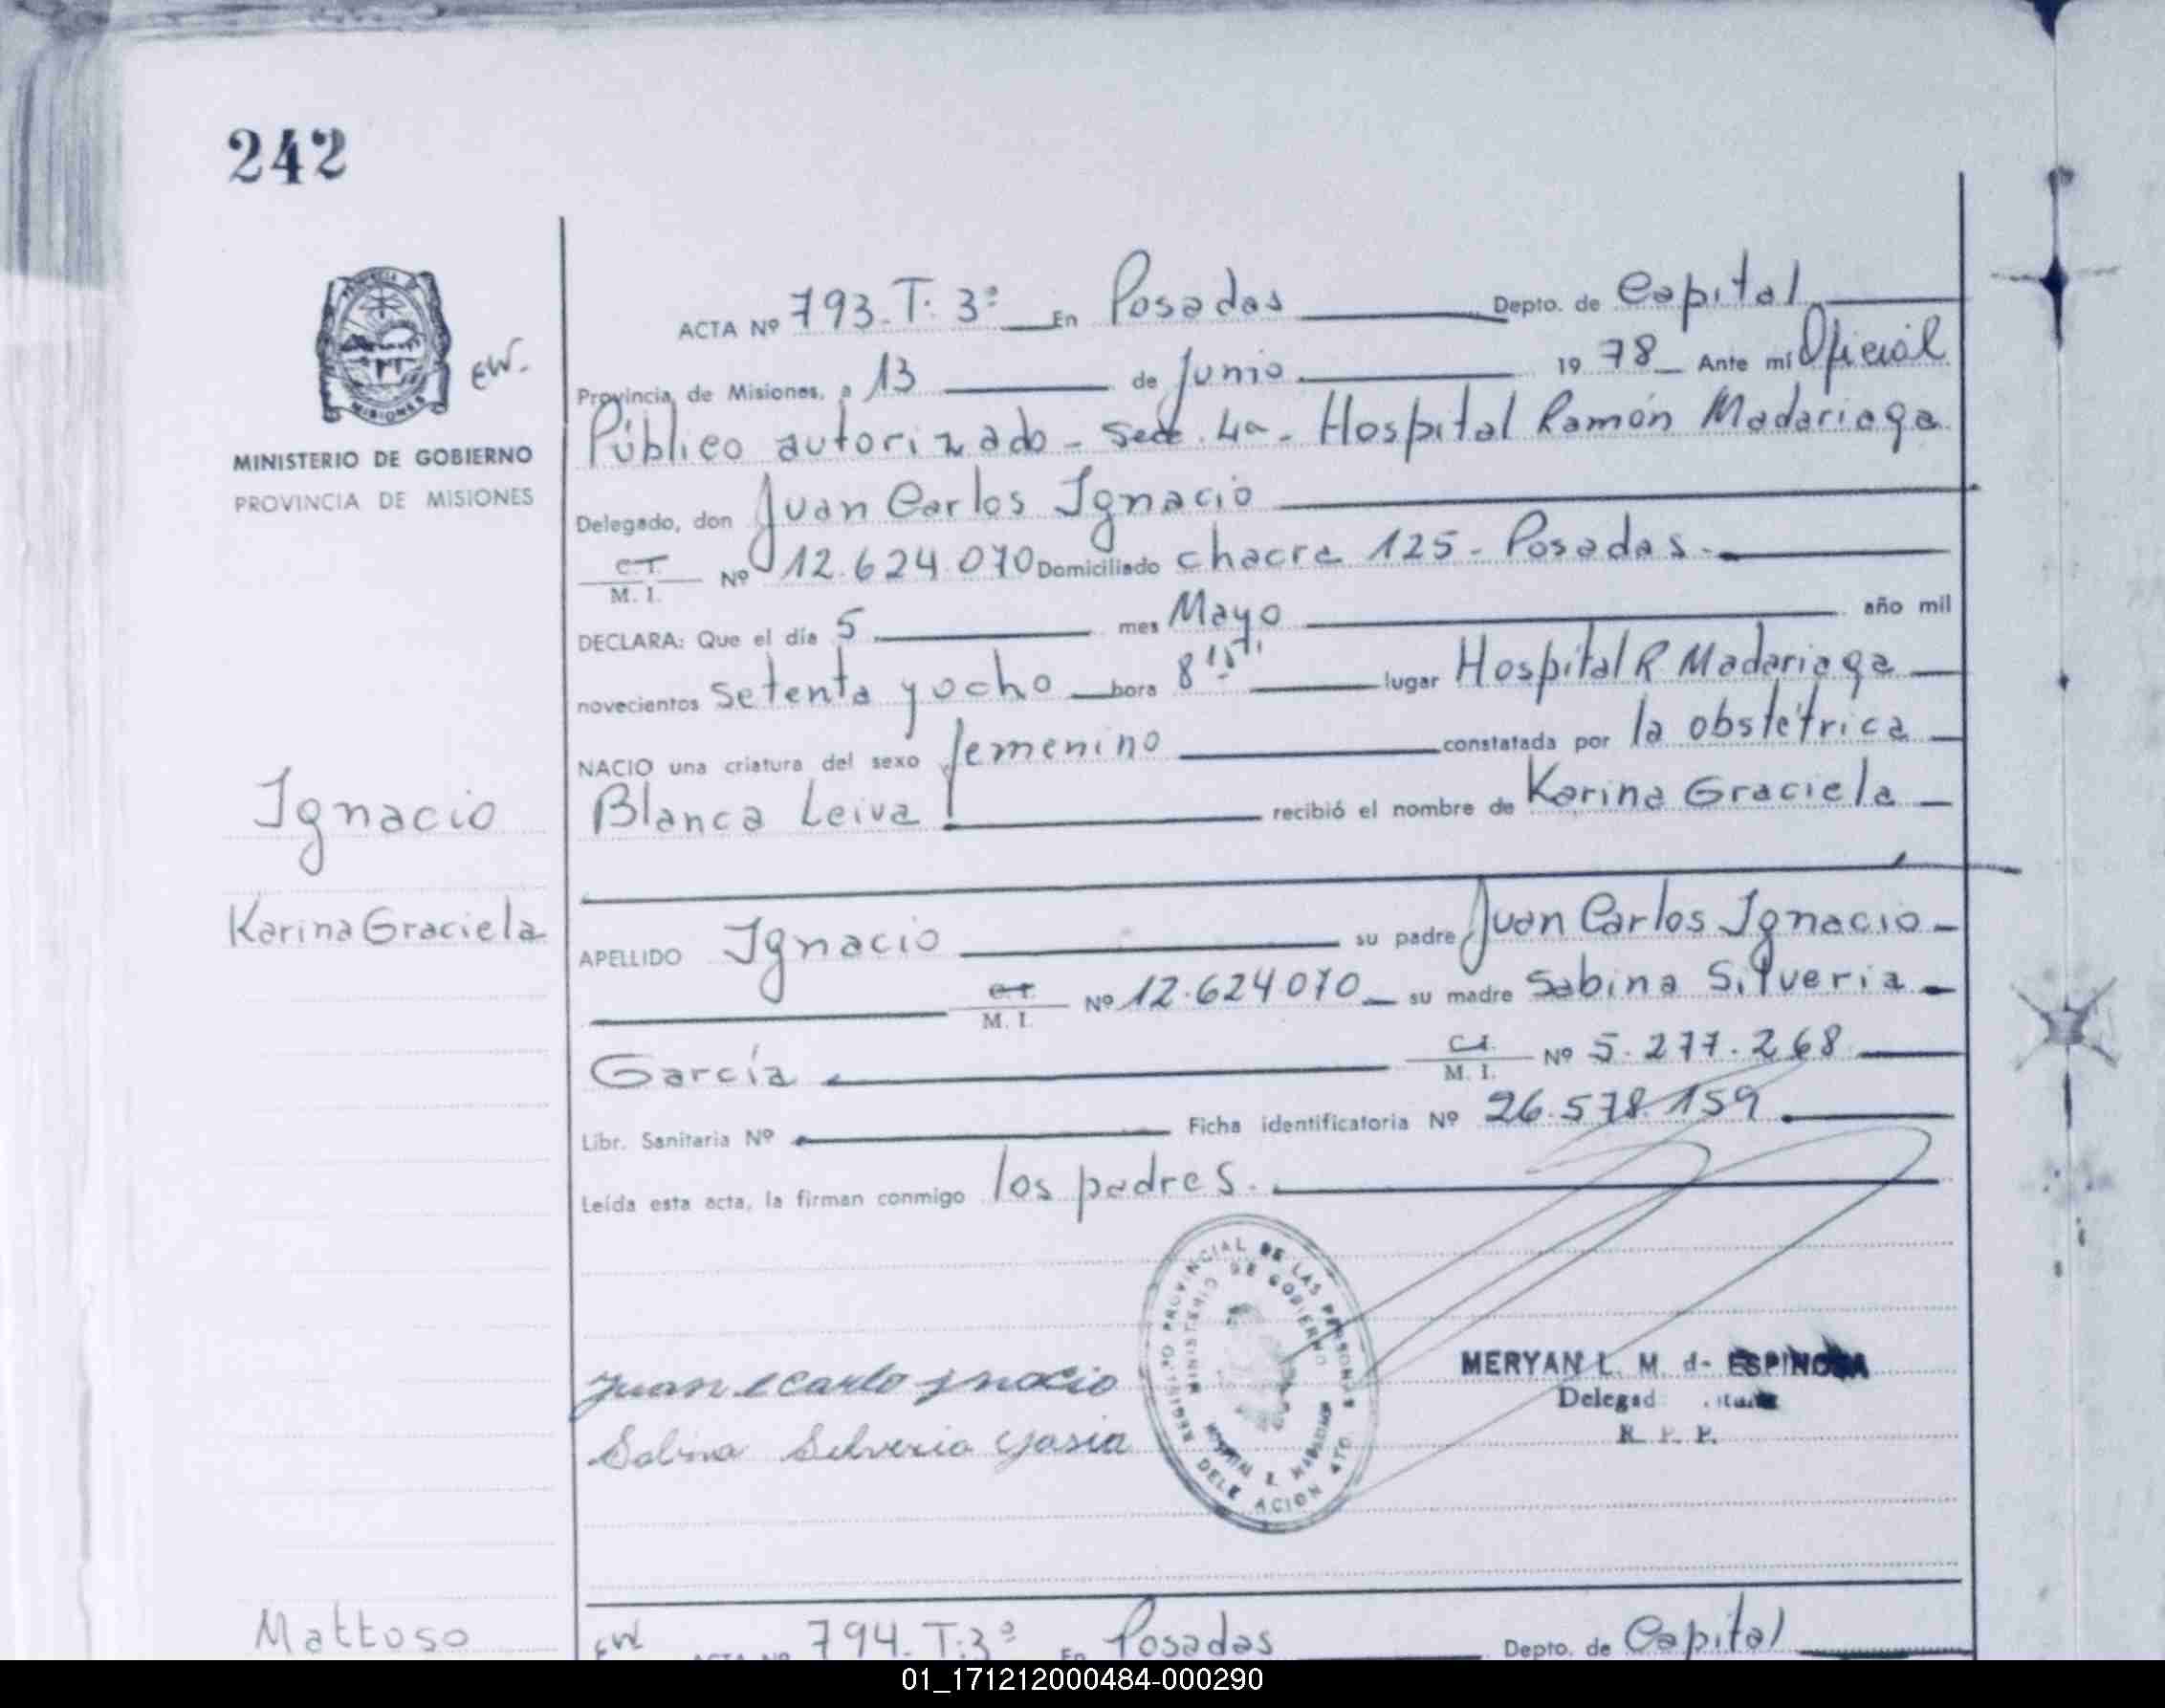 242
EW.
MINISTERIO DE GOBIERNO
PROVINCIA DE MISIONES
ACTA Nº 793. T. 3º En Posadas Depto. de Capital
Provincia de Misiones, a 13 de Junio 19 78 Ante mí Oficial
Público autorizado - Secc. 4ª - Hospital Ramón Madariaga
Delegado, don Juan Carlos Ignacio
C.I. M. I. Nº 12.624.070 Domiciliado chacra 125 - Posadas.
DECLARA: Que el día 5 mes Mayo año mil
novecientos setenta y ocho hora 8 lugar Hospital R Madariaga
NACIO una criatura del sexo femenino constatada por la obstétrica
Ignacio
Blanca Leiva recibió el nombre de Karina Graciela
Karina Graciela
APELLIDO Ignacio su padre Juan Carlos Ignacio
C.I. M. I. Nº 12.624070 su madre Sabina Silveria
García C.I. M. I. Nº 5.277.268
Libr. Sanitaria Nº Ficha identificatoria Nº 26.578.159
Leída esta acta, la firman conmigo los padres.
REGISTRO PROVINCIAL DE LAS PERSONAS
MINISTERIO DE GOBIERNO
MERYAN L. M. de ESPINOSA
Delegad
R. P. P.
Juan Carlo
Sabina Silveria
Mattoso
EW
ACTA Nº 794. T. 3º En Posadas Depto. de Capital
01_171212000484-000290